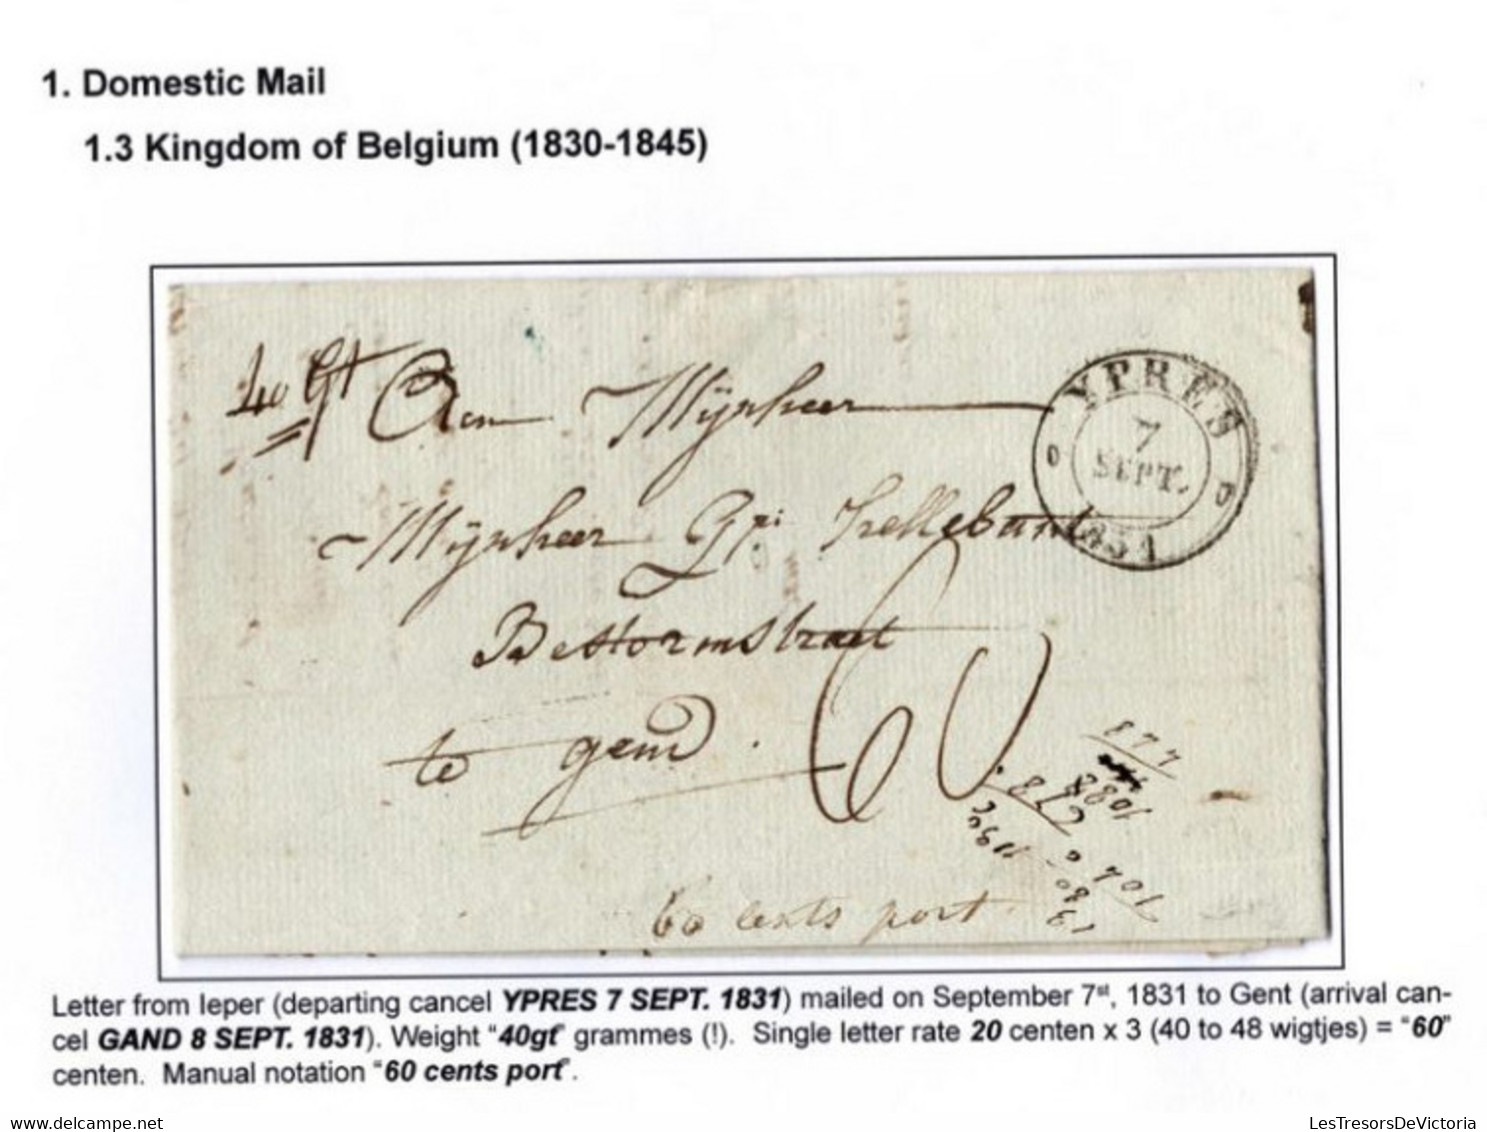 1. Domestic Mail
1.3 Kingdom of Belgium (1830-1845)
40 gt
Aen Mÿnheer
YPRES
7
SEPT.
1831
Mÿnheer
Bestormstraet
te gend.
60
177
1088
60 cents port.
Letter from Ieper (departing cancel YPRES 7 SEPT. 1831) mailed on September 7st, 1831 to Gent (arrival can-
cel GAND 8 SEPT. 1831). Weight "40gt" grammes (!). Single letter rate 20 centen x 3 (40 to 48 wigtjes) = "60"
centen. Manual notation "60 cents port".
www.delcampe.net
LesTresorsDeVictoria